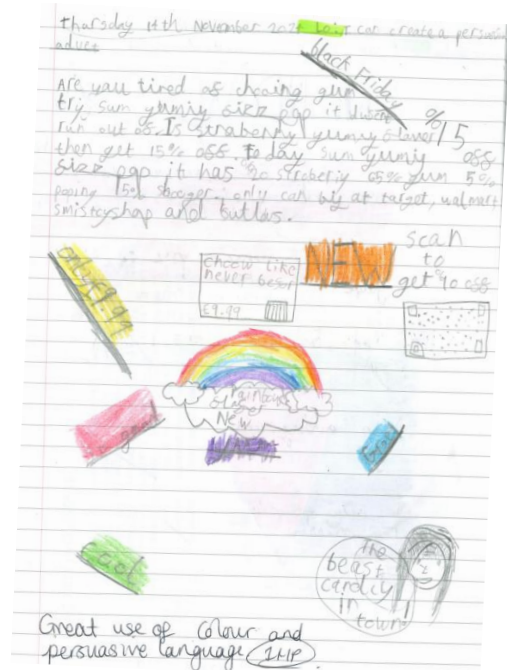 Thursday 14th November 202 can create a persua
advet
black Friday
Are you tired of chooing gum
try sum yumiy sizz pop it
run out of. Is straberry yumiy flaver
%15
off
then get 15% off today sum yumiy
sizz pop it has 20% stroberiy 65% gum 5%
poping 15% shooger. i only can biy at target, walmart
smisteyshop and butlas.
only £9.99
choow like
never befor
£9.99
NEW
scan
to
get %10 off
rainbow
New
good
col
the
beast
candiy
in
town!
Great use of colour and
persuasive language 1HP